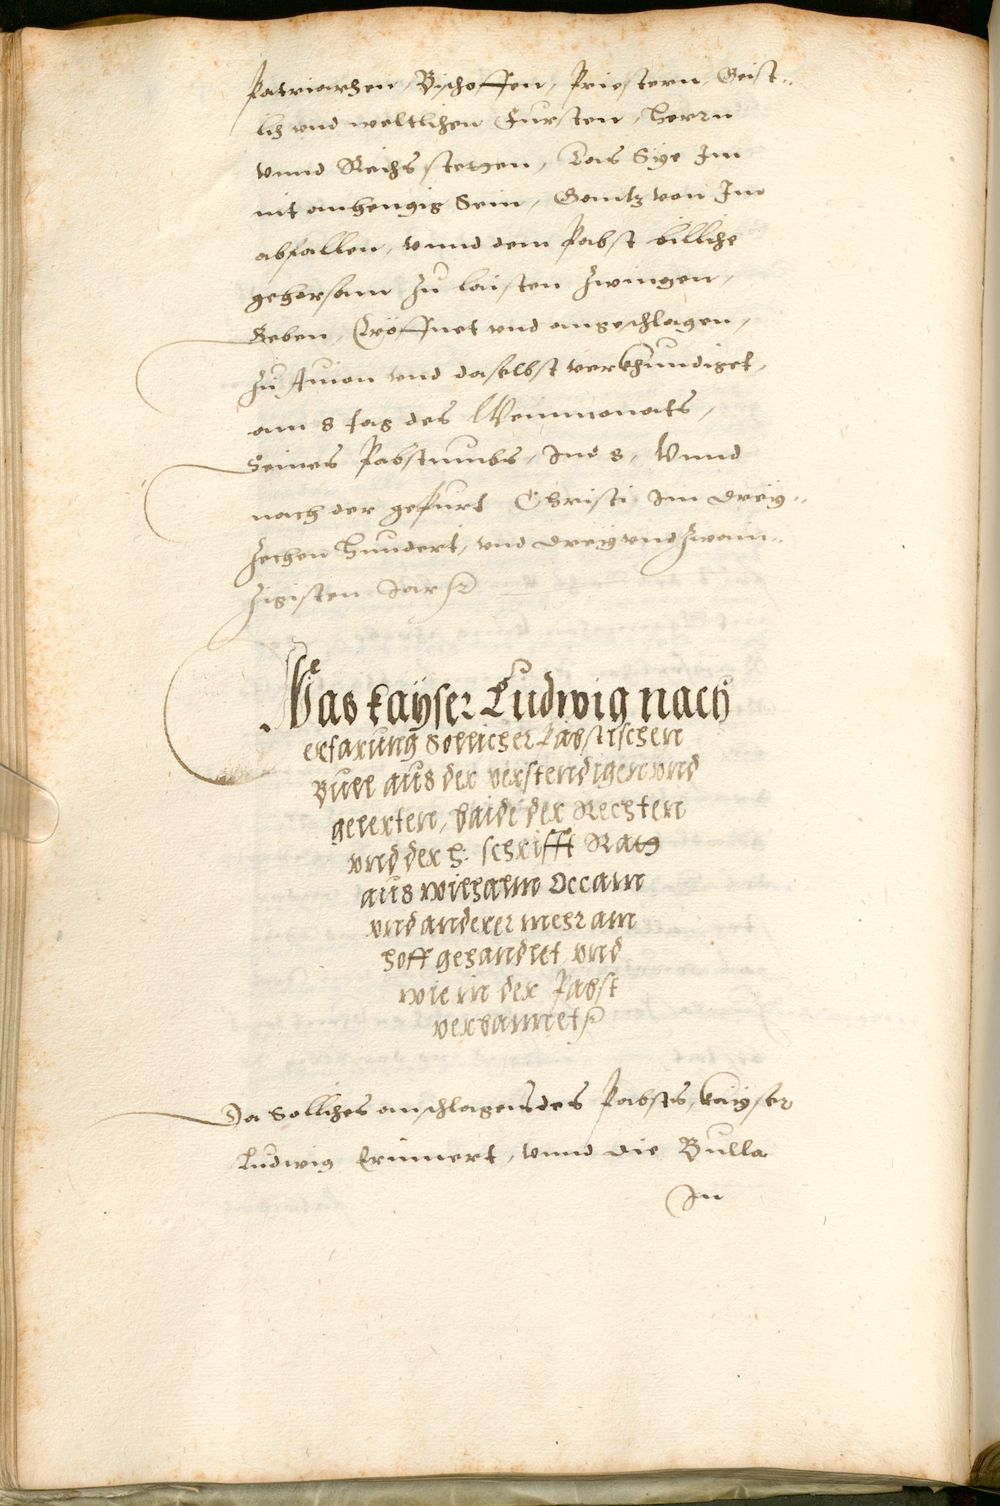 Patriarhen, Bischoffen, Priestern, Geist-
lich vnd weltlichen Fursten, Herrn
vnnd Reichs stetten, das Sye Im
nit anhengig Sein, Gantz von Ime
abfallen, vnnd dem Pabst billiche
gehorsam zu laisten zwingen,
Geben, Eröffnet vnd angeschlagen,
zu Auion vnd daselbst verkhundiget,
am 8 tag des Weinmonats,
Seines Pabstumbs, Im 8, Vnnd
nach der gepurt Christi im Drey-
zechen hundert, vnd dreyvndzwain-
zigisten Jar
Was kayser Ludwig nach
erfarung Sollicher Päbstischen
Bull aus der verstendigen vnd
gelerten, baide der Rechten
vnd der h. schrifft Rath
aus Wilhalm Occam
vnd anderer mehr am
hoff gehandlet vnd
wie in der Pabst
verbannet
Da Solliches anschlagens des Pabsts, kayser
Ludwig Erinnert, vnnd die Bulla
In